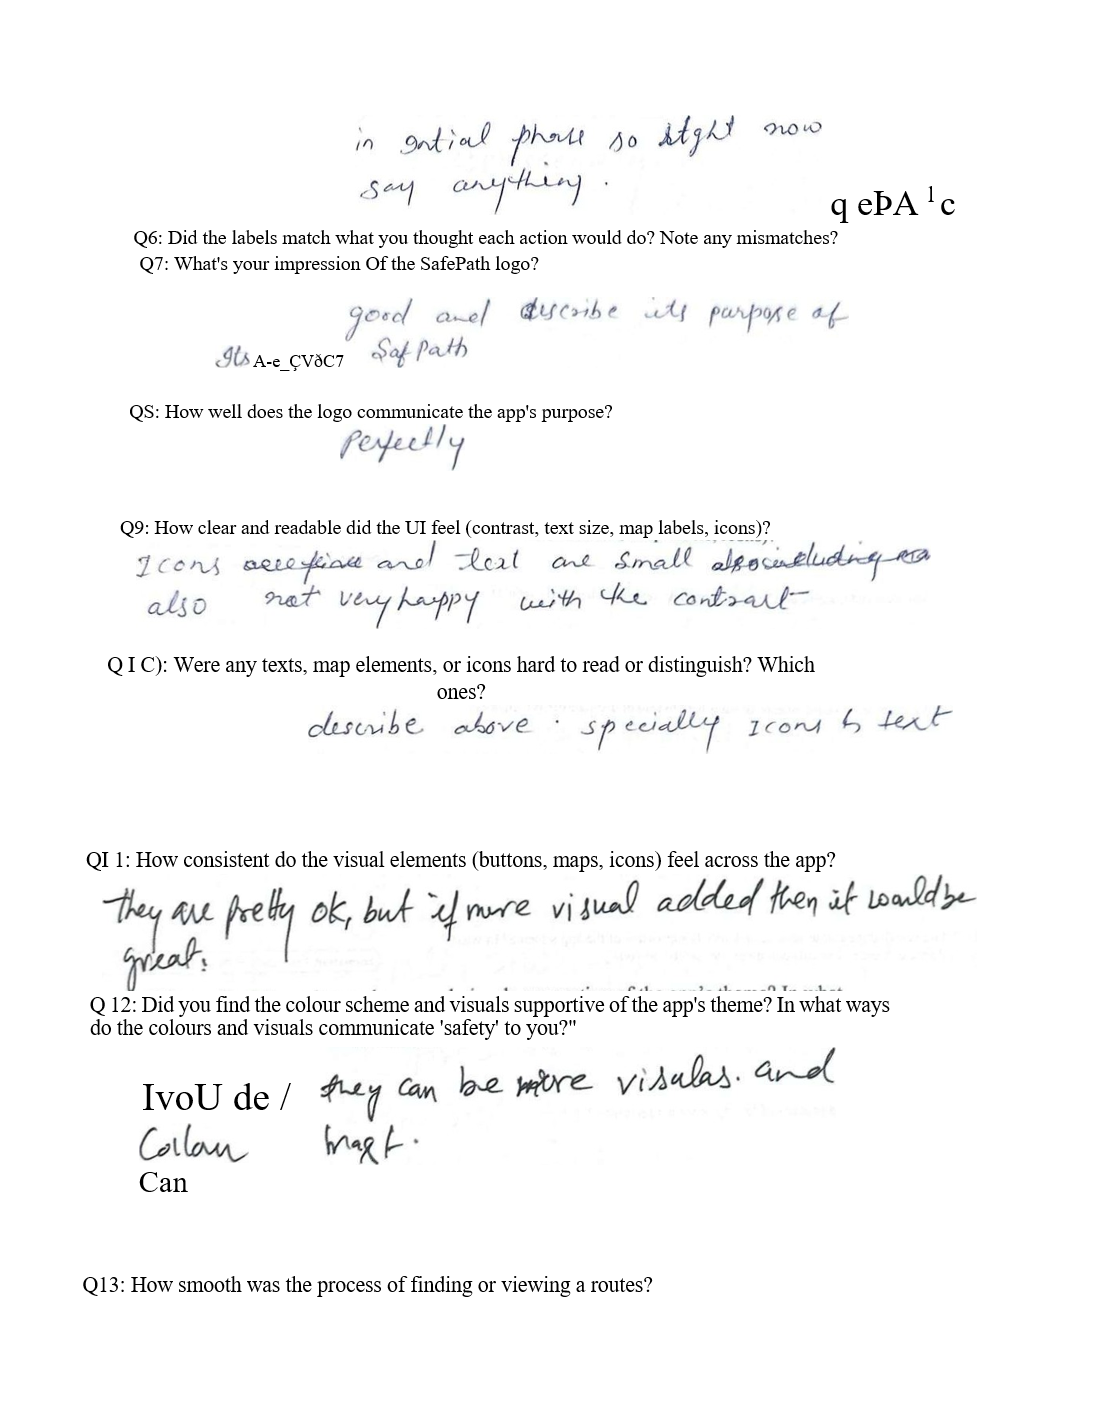 in gntial phase so stght now
say anything.
q eÞA ¹c
Q6: Did the labels match what you thought each action would do? Note any mismatches?
Q7: What's your impression Of the SafePath logo?
good and describe its purpose of
Its A-e_ÇVðC7 Saf Path
QS: How well does the logo communicate the app's purpose?
Perfectly
Q9: How clear and readable did the UI feel (contrast, text size, map labels, icons)?
Icons and text are small
also not very happy with the contrast
Q I C): Were any texts, map elements, or icons hard to read or distinguish? Which
ones?
describe above. specially Icons & text
QI 1: How consistent do the visual elements (buttons, maps, icons) feel across the app?
they are pretty ok, but if more visual added then it would be
great.
Q 12: Did you find the colour scheme and visuals supportive of the app's theme? In what ways
do the colours and visuals communicate 'safety' to you?"
IvoU de / they can be more visulas. and
Can
Q13: How smooth was the process of finding or viewing a routes?